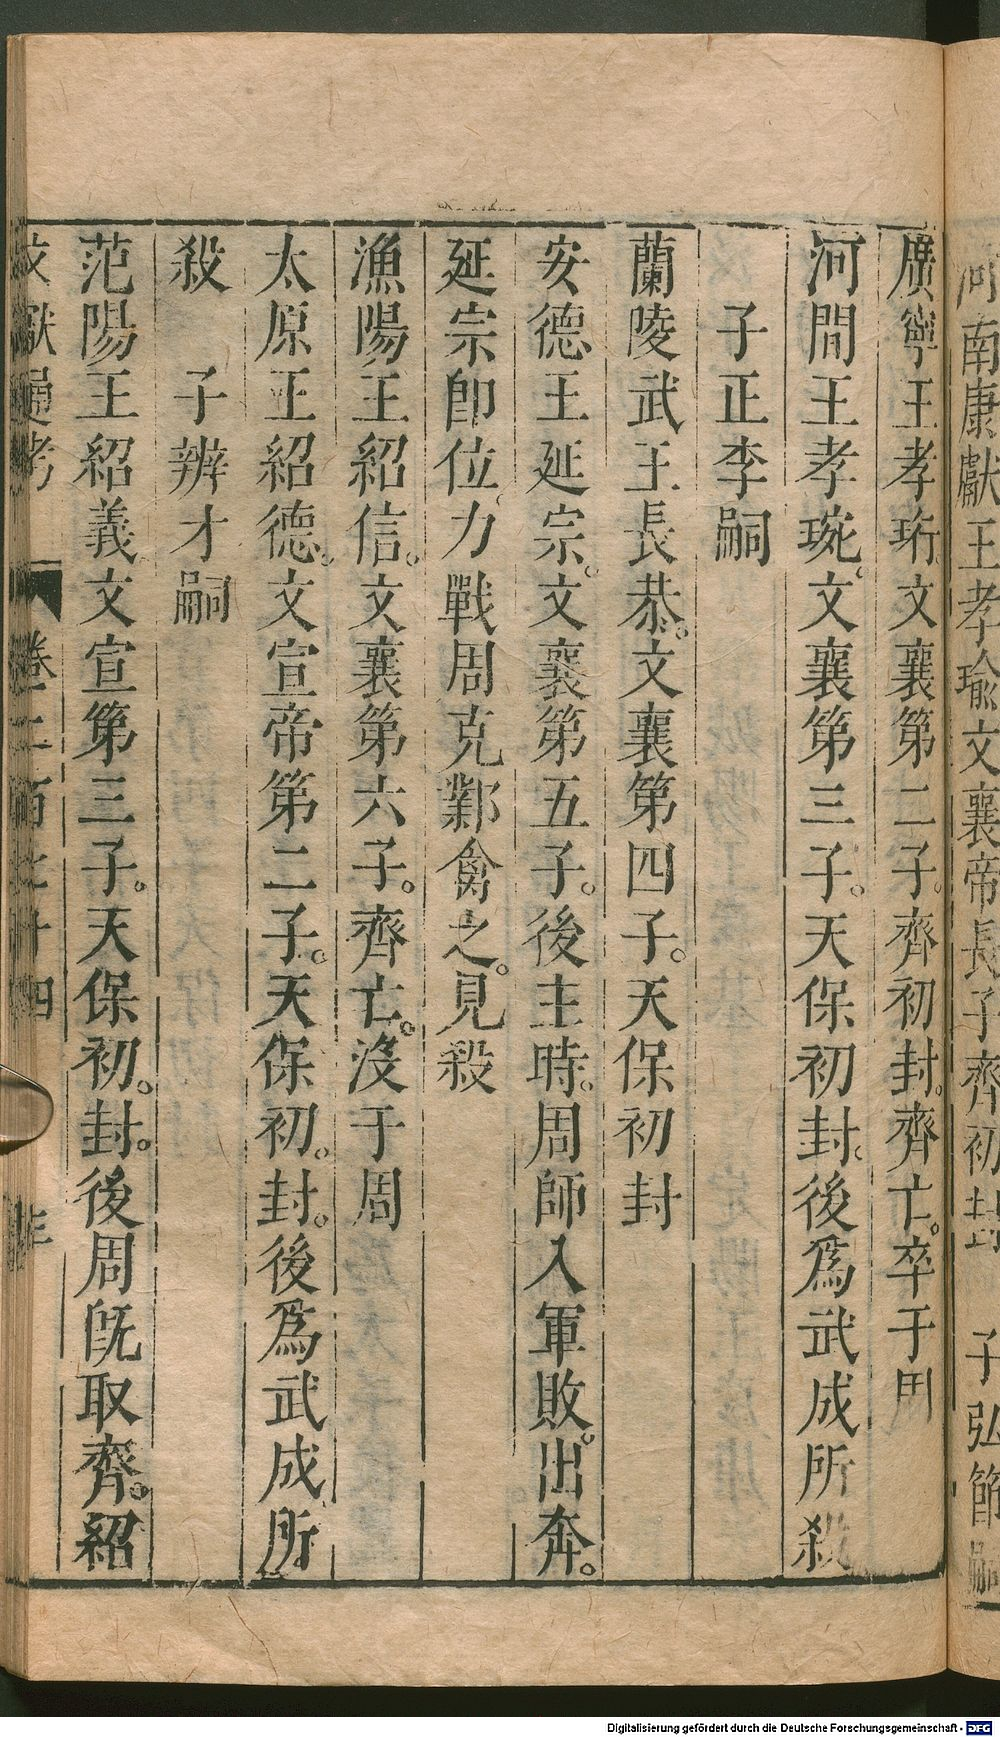 河南康獻王孝瑜文襄帝長子齊初封　子弘節嗣
廣寧王孝珩文襄第二子。齊初封。齊亡。卒于周
河間王孝琬。文襄第三子。天保初封。後爲武成所殺
子正李嗣
蘭陵武王長恭。文襄第四子。天保初封
安德王延宗。文襄第五子。後主時。周師入軍敗。出奔。
延宗卽位。力戰周克鄴禽之。見殺
漁陽王紹信。文襄第六子。齊亡。沒于周
太原王紹德。文宣帝第二子。天保初。封。後爲武成所
殺　子辨才嗣
范陽王紹義文宣第三子。天保初。封。後周旣取齊。紹
文獻通考　卷二百七十四　三
Digitalisierung gefördert durch die Deutsche Forschungsgemeinschaft - DFG